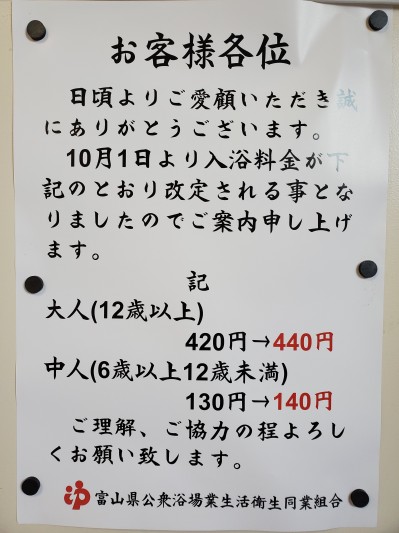 お客様各位
日頃よりご愛顧いただき誠
にありがとうございます。
10月1日より入浴料金が下
記のとおり改定される事とな
りましたのでご案内申し上げ
ます。
記
大人(12歳以上)
420円→440円
中人(6歳以上12歳未満)
130円→140円
ご理解、ご協力の程よろし
くお願い致します。
富山県公衆浴場業生活衛生同業組合